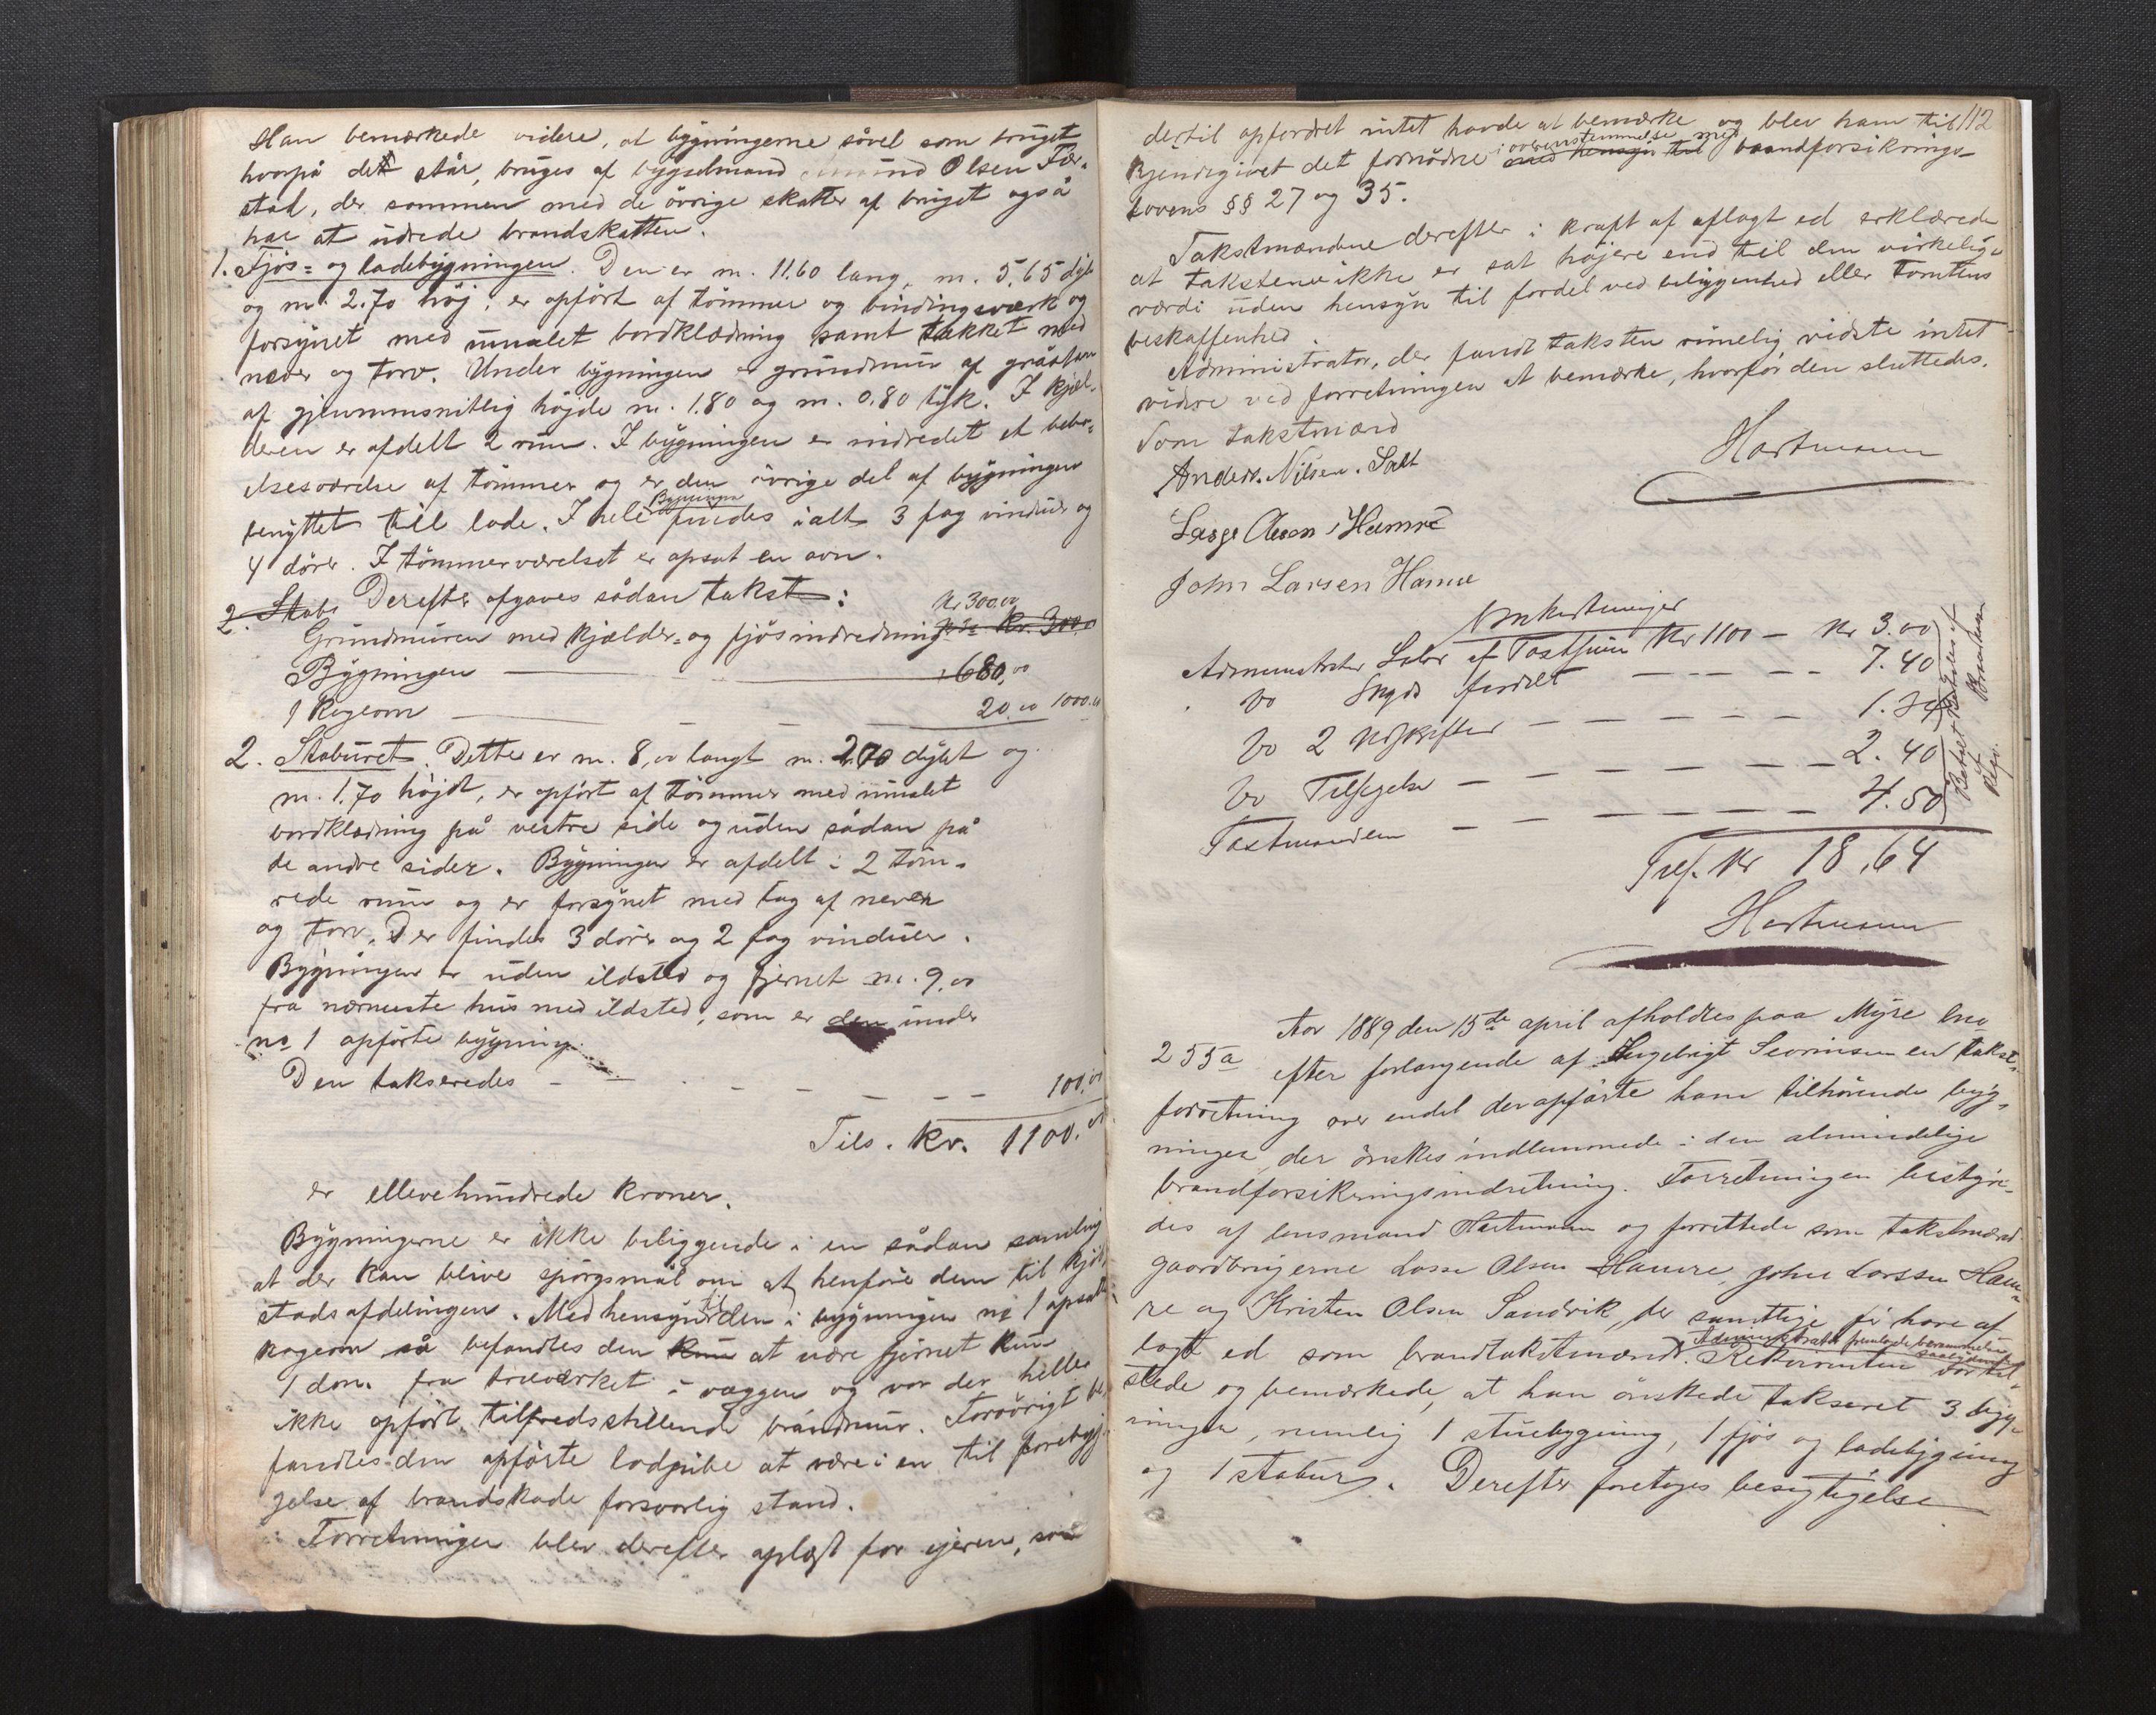 Han bemærkede videre, at bygningerne såvel som bruget
hvorpå det står, bruges af bygselmand Olsen Fær-
stad, der sammen med de övrige skatter af bruget også
har at udrede brandskatten.
1. Fjös- og ladebygningen. Den er m. 11.60 lang, m. 5,65 dyb
og m. 2.70 höj, er opfört af tömmer og bindingsværk og
forsynet med umalet bordklædning samt tækket med
never og torv. Under bygningen er grundmur af gråsten
af gjennemsnitlig höjde m. 1.80 og m. 0.80 tyk. I kjæl-
deren er afdelt 2 rum. I bygningen er indredet et bebo-
elsesværelse af tömmer og er den övrige del af bygningen
benyttet till lade. I hele Bygningen findes ialt 3 fag vinduer og
4 dörer. I tömmerværelset er opsat en ovn.
2. Stabu Derefter afgaves sådan takst:
Grundmuren med kjælder- og fjösindredning Kr 300.00 Kr. 300.
Bygningen 680,00
1 Kogeovn 20.00 1000.00
2. Staburet. Dette er m. 8,00 langt m. 2.70 dybt og
m. 1.70 höjt, er opfört af tömmer med umalet
bordklædning på vestre side og uden sådan på
de andre sider. Bygningen er afdelt i 2 töm-
rede rum og er forsynet med tag af never
og torv. Der findes 3 dörer og 2 fag vinduer.
Bygningen er uden ildsted og fjernet m. 9,00
fra nærmeste hus med ildsted, som er den under
no 1 opförte bygning.
Den takseredes 100,00
Tils. Kr. 1100.00
er ellevehundrede kroner.
Bygningerne er ikke beliggende i en sådan samling
at der kan blive spörgsmål om at henföre dem til kjöb
stadsafdelingen. Med hensyn til den i bygningen no 1 opsatte
kogeovn så befandtes den kun at være fjernet kun
1 dcm. fra træværket i væggen og var der heller
ikke opfört tilfredsstillende brandmur. Forövrigt be-
fandtes den opförte lodpibe at være i en til forebyg-
gelse af brandskade forsvarlig stand.
Forretningen blev derefter oplæst for ejeren, som
112
dertil opfordret intet havde at bemærke og blev ham til
kjendegivet det fornödne i overensstemmelse med med hensyn til brandforsikrings-
lovens §§ 27 og 35.
Takstmændene derefter i kraft af aflagt ed erklærede
at taksterne ikke er sat höjere end til den virkelige
værdi uden hensyn til fordel ved beliggenhed eller tomtens
beskaffenhed.
Administrator, der fandt taksten rimelig vidste intet
videre ved forretningen at bemærke, hvorfor den sluttedes.
Som takstmænd
Hartmann
Anders. Nilsen. Salt
Lasse Olsen Hamre
John Larsen Hamre
Omkostninger
Administrator Salær af Taxtsum Kr 1100 — Kr 3.00
Do Skyds 7.40
Do 2 Udskrifter 1.34
Do Tilsigelse 2.40
Taxtmændene 4.50
Betalt
Tils. Kr 18,64
Hartmann
Aar 1889 den 15de april afholdtes paa Myre bno
255a efter forlangende af Ingebrigt Severinsen en takst-
forretning over endel der opförte ham tilhörende byg-
ninger, der önskes indlemmede i den almindelige
brandforsikringsindretning. Forretningen bestyre-
des af lensmand Hartmann og forrettede som takstmænd
gaardbrugerne Lasse Olsen Hamre, John Larsen Ham-
re og Kristen Olsen Sandvik, der samtlige för have af
lagt ed som brandtakstmænd. Administrator fremlagde Rekvirenten var til-
stede og bemærkede, at han önskede takseret 3 byg-
ninger, nemlig 1 stuebygning, 1 fjös og ladebygning
og 1 stabur. Derefter foretoges besigtigelse